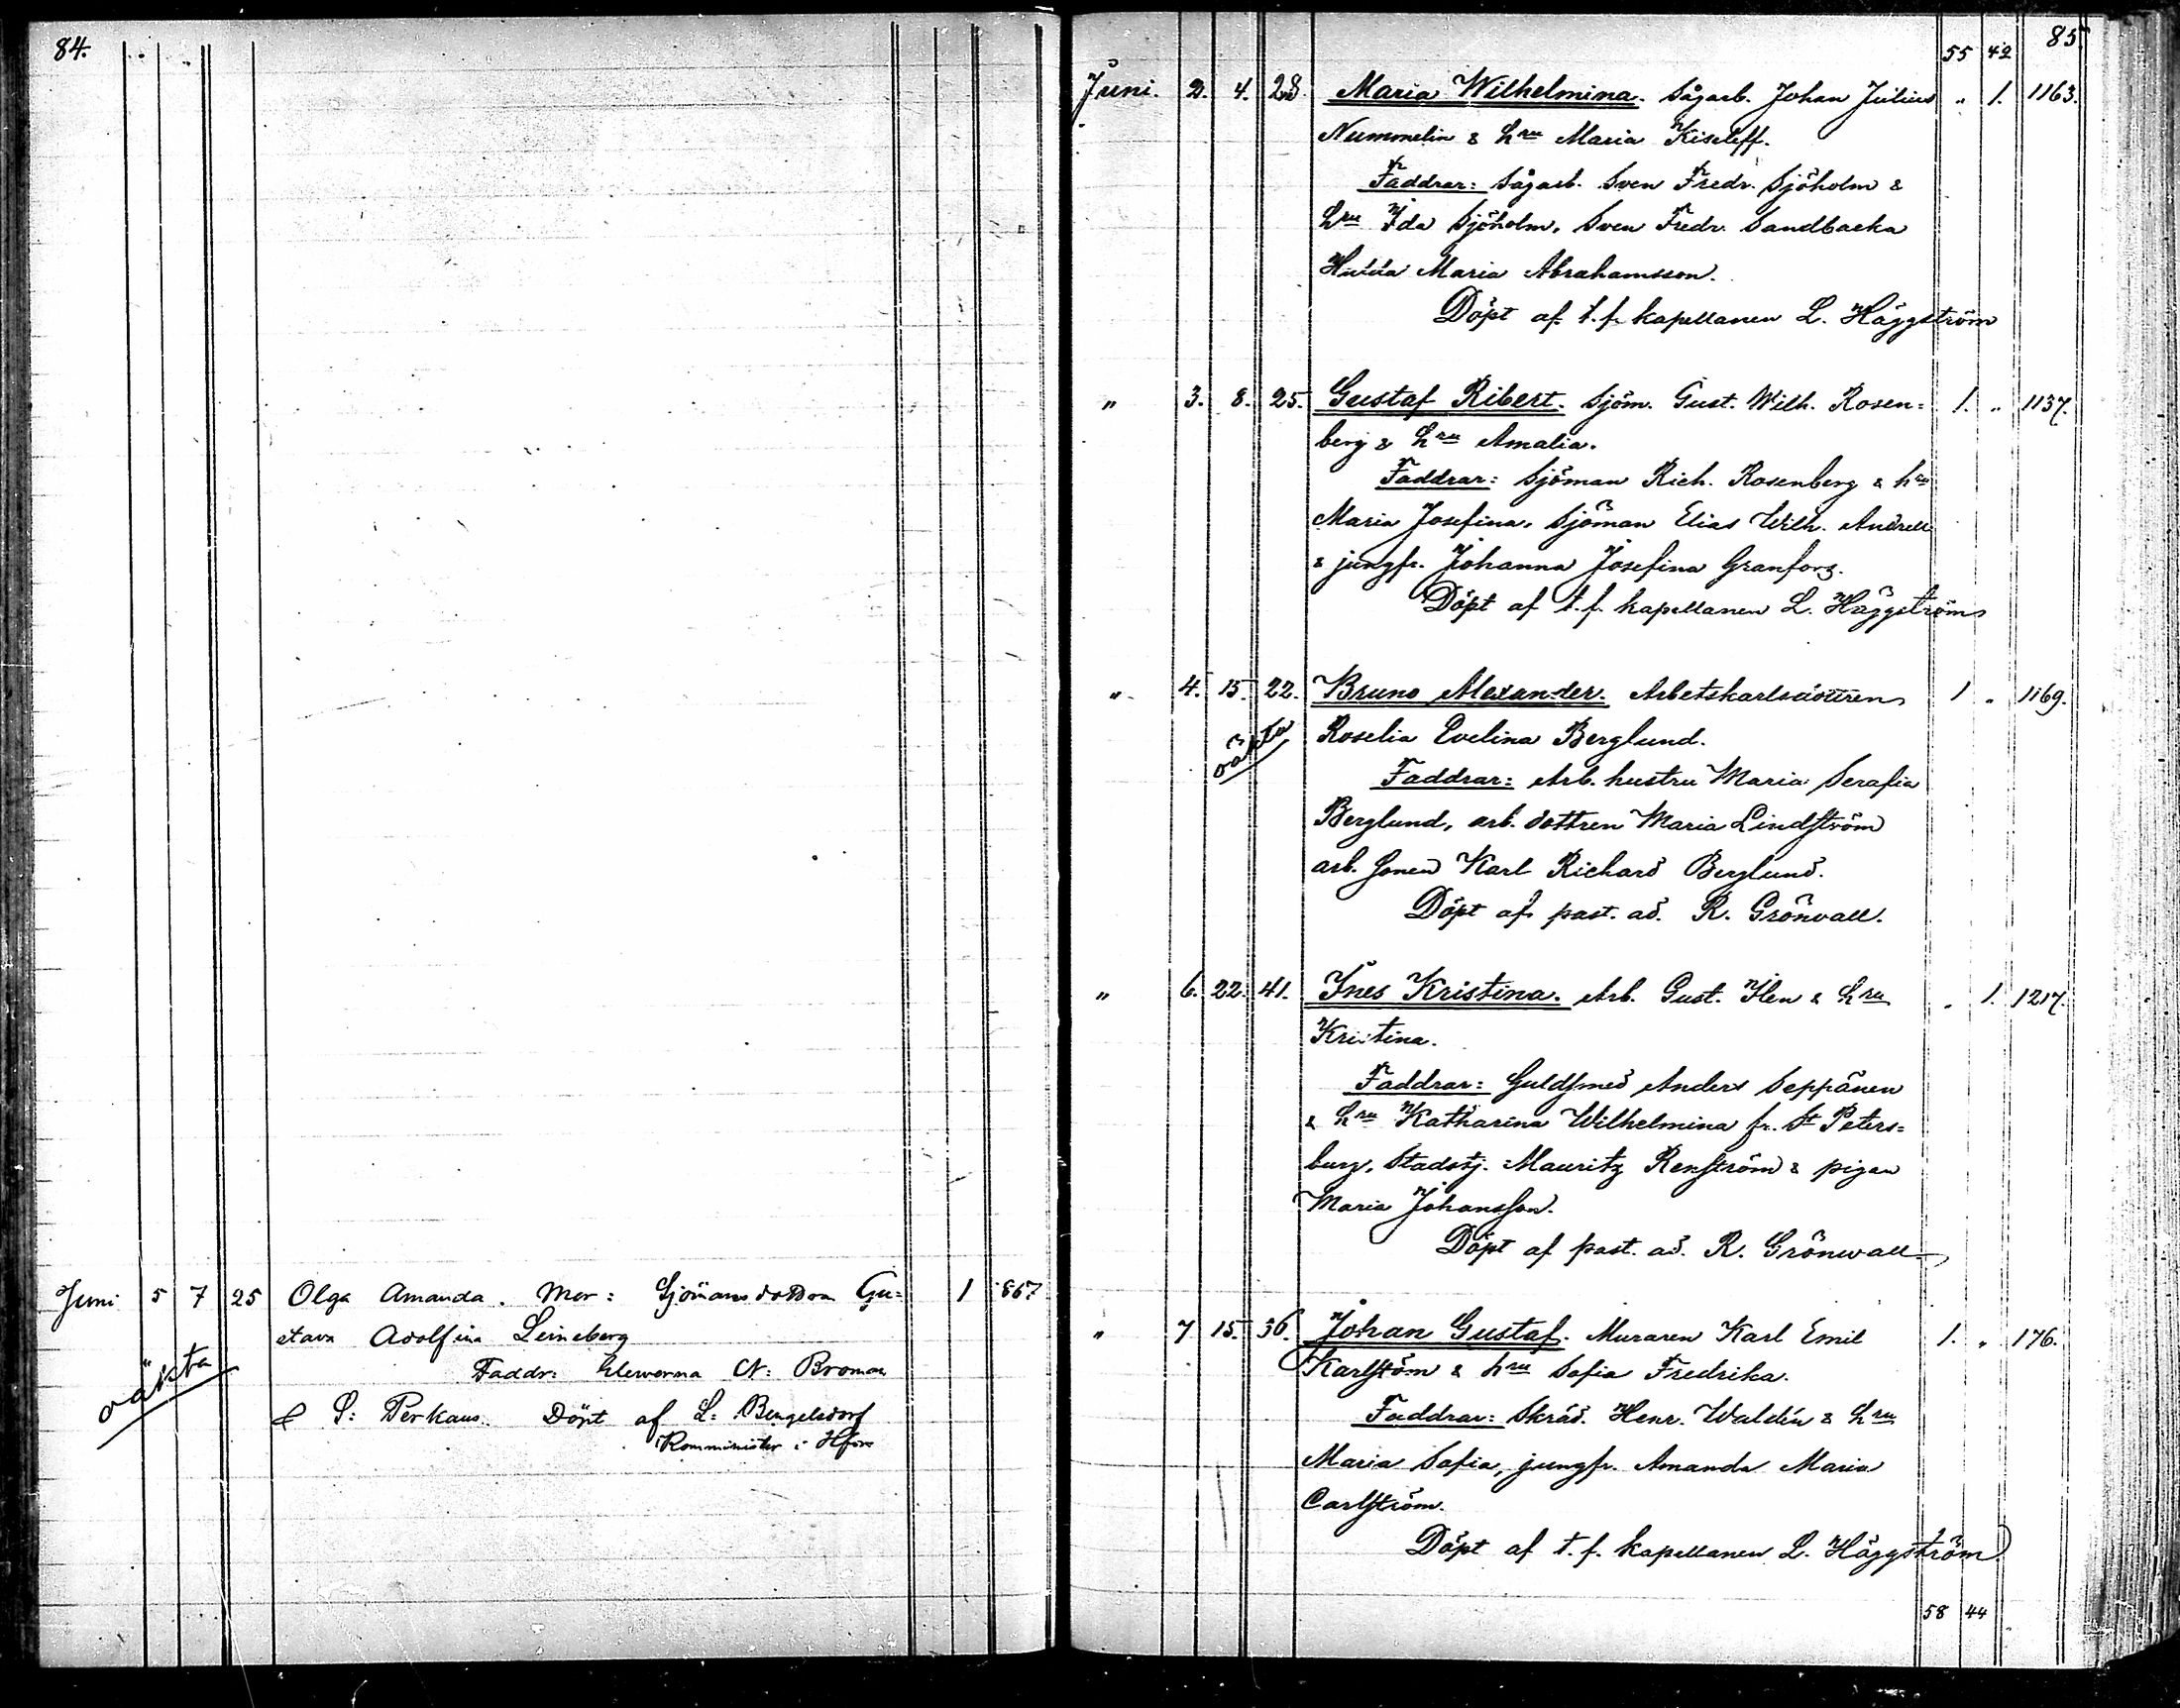 84.
Juni 5 7 25 Olga Amanda. Mor: Sjömansdottren Gu= 1 867
stava Adolfina Leineberg
oäkta
Faddr: Eleverna N: Broman
& S: Perkaus. Döpt af L: Bengelsdorf
Komminister i Hfors
85.
55 42
Juni. 2. 4. 28. Maria Wilhelmina. Sågarb. Johan Julius " 1. 1163.
Nummelin & hru Maria Kiseleff.
Faddrar: Sågarb. Sven Fredr. Sjöholm &
hru Ida Sjöholm, Sven Fredr. Sandbacka
Maria Abrahamsson.
Döpt af t.f. kapellanen L. Häggström
" 3. 8. 25. Gustaf Ribert. Sjöm. Gust. Wilh. Rosen= 1. " 1137.
berg & hru Amalia.
Faddrar: Sjöman Rich. Rosenberg & hru
Maria Josefina, Sjöman Elias Wilh. Andrell
& jungfr. Johanna Josefina Granfors.
Döpt af t.f. kapellanen L. Häggström
" 4. 15. 22. Bruno Alexander. Arbetskarlsdottren 1 " 1169.
oäkta Roselia Evelina Berglund.
Faddrar: Arb. hustru Maria Serafia
Berglund, arb. dottren Maria Lindström
arb. sonen Karl Richard Berglund.
Döpt af past. ad. R. Grönvall.
" 6. 22. 41. Ines Kristina. Arb. Gust. Ilen & hru " 1. 1217.
Kristina.
Faddrar: Guldsmed Anders Seppänen
& hru Katharina Wilhelmina fr. St Peters=
burg, Stadstj. Mauritz Renström & pigan
Maria Johansson.
Döpt af past. ad. R. Grönwall
" 7 15. 36. Johan Gustaf. Muraren Karl Emil 1. " 176.
Karlström & hru Sofia Fredrika.
Faddrar: Skräd. Henr. Waldén & hru
Maria Sofia, jungfr. Amanda Maria
Carlström.
Döpt af t.f. kapellanen L. Häggström
58 44